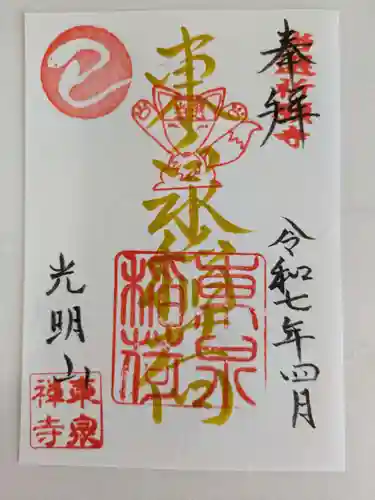 奉拝
令和七年四月
東泉稲荷
東泉
稲荷
光明山
東泉
禅寺